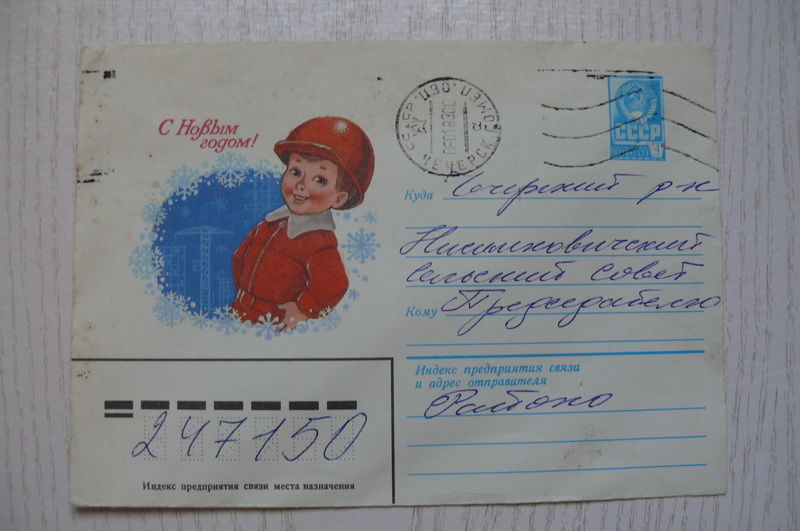 С Новым
годом!
СССР
ЧЕЧЕРСК
Куда р-н
сельский Совет
Кому Председателю
Индекс предприятия связи
и адрес отправителя
Районо
247150
Индекс предприятия связи места назначения